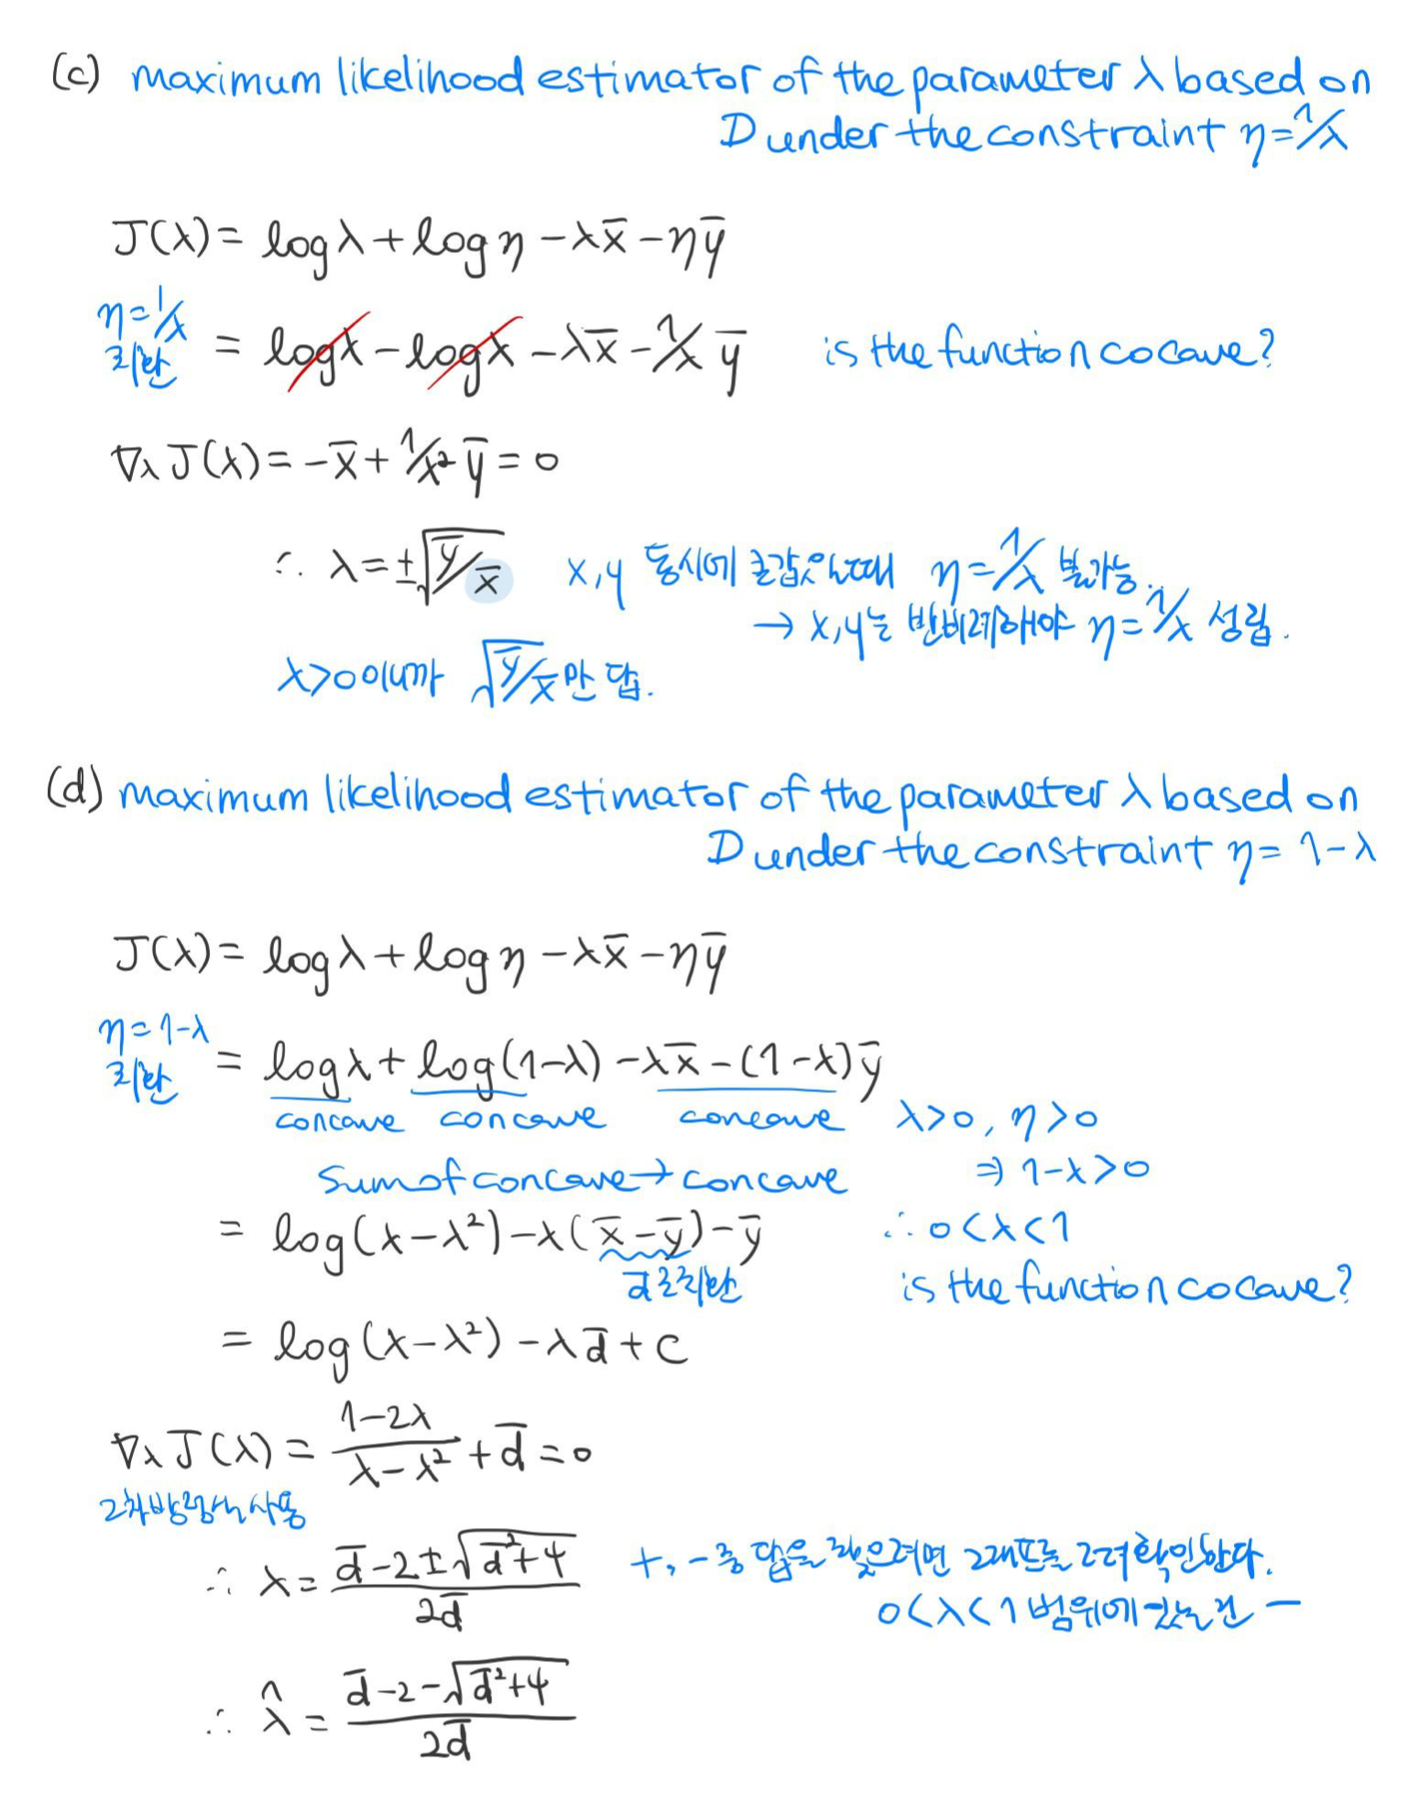 (c) maximum likelihood estimator of the parameter λ based on
D under the constraint η=1/λ
J(λ)= logλ+logη-λx̄-ηȳ
η=1/λ
치환
= logλ-logλ-λx̄-1/λ ȳ is the function cocave?
∇λ J(λ)=-x̄+1/λ² ȳ=0
∴ λ=±√ȳ/x̄ x,y 동시에 큰값 η=1/λ 불가능.
→ x,y는 반비례해야 η=1/λ 성립.
λ>0이니까 √ȳ/x̄ 만 답.
(d) maximum likelihood estimator of the parameter λ based on
D under the constraint η= 1-λ
J(λ)= logλ+logη-λx̄-ηȳ
η=1-λ
치환
= logλ+log(1-λ)-λx̄-(1-λ)ȳ
concave concave concave λ>0, η>0
Sum of concave→concave ⇒ 1-λ>0
= log(λ-λ²)-λ(x̄-ȳ)-ȳ ∴ 0<λ<1
d̄로치환 is the function cocave?
= log(λ-λ²)-λd̄+c
∇λ J(λ)= (1-2λ)/(λ-λ²) +d̄=0
2차방정식 사용
∴ λ= (d̄-2±√d̄²+4)/2d̄ +, - 중 답을 찾으려면 그래프를 그려 확인한다.
0<λ<1 범위에 있는건 -
∴ λ̂= (d̄-2-√d̄²+4)/2d̄